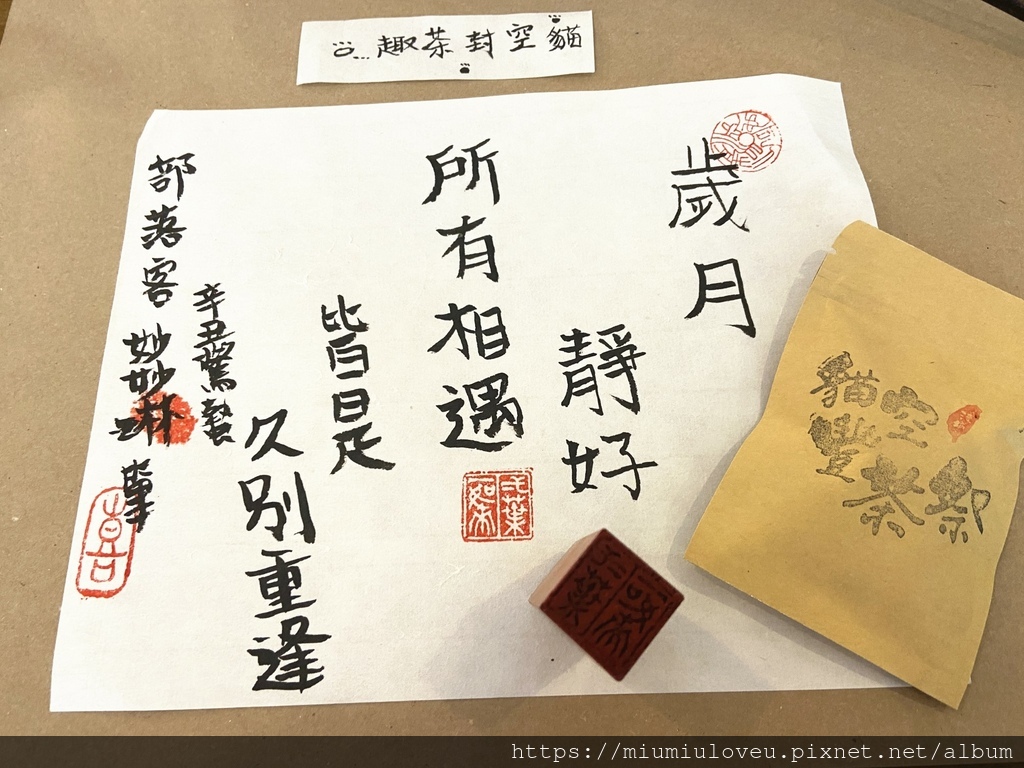 貓空封茶趣
歲月
靜好
所有相遇
皆是
久別重逢
辛丑驚蟄
部落客 妙妙琳
喜
貓空
茶鄉
https://miumiuloveu.pixnet.net/album